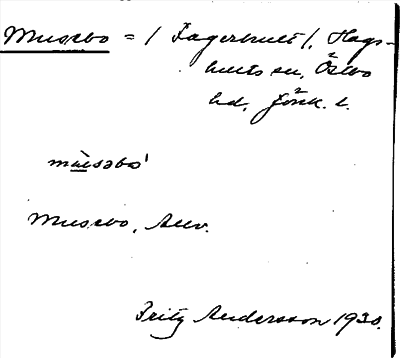 Mussebo = / Fagerhult /, Hags-
hults sn, Östbo
hd, Jönk. l.
Mussebo, Auv.
Fritz Andersson 1930.